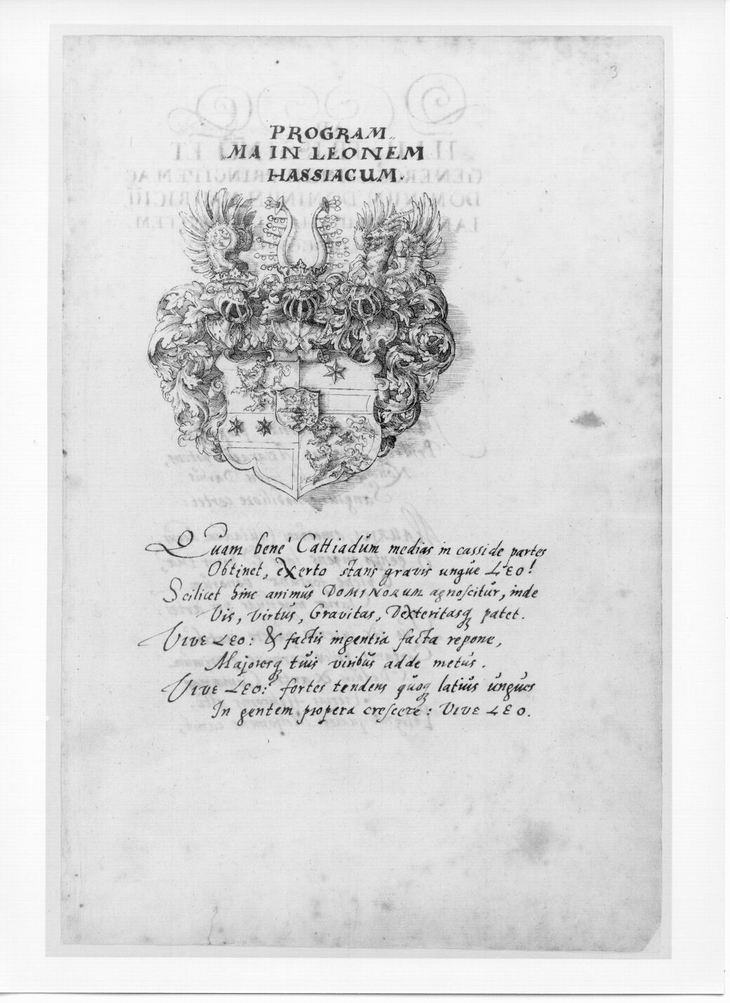 3
PROGRAM
MA IN LEONEM
HASSIACUM.
Quam bené Cattiadúm medias in casside partes
Obtinet, exerto stans gravis ungúe LEO!
Scilicet hinc animús DOMINORUM agnoscitur, inde
Vis, Virtús, Gravitas, Dexteritasq́ patet.
VIVE LEO: & factis ingentia facta repone,
Majoresq́ túis viribús adde metús.
VIVE LEO: fortes tendens qúoq́ latiús úngúes
In gentem propera crescere: VIVE LEO.